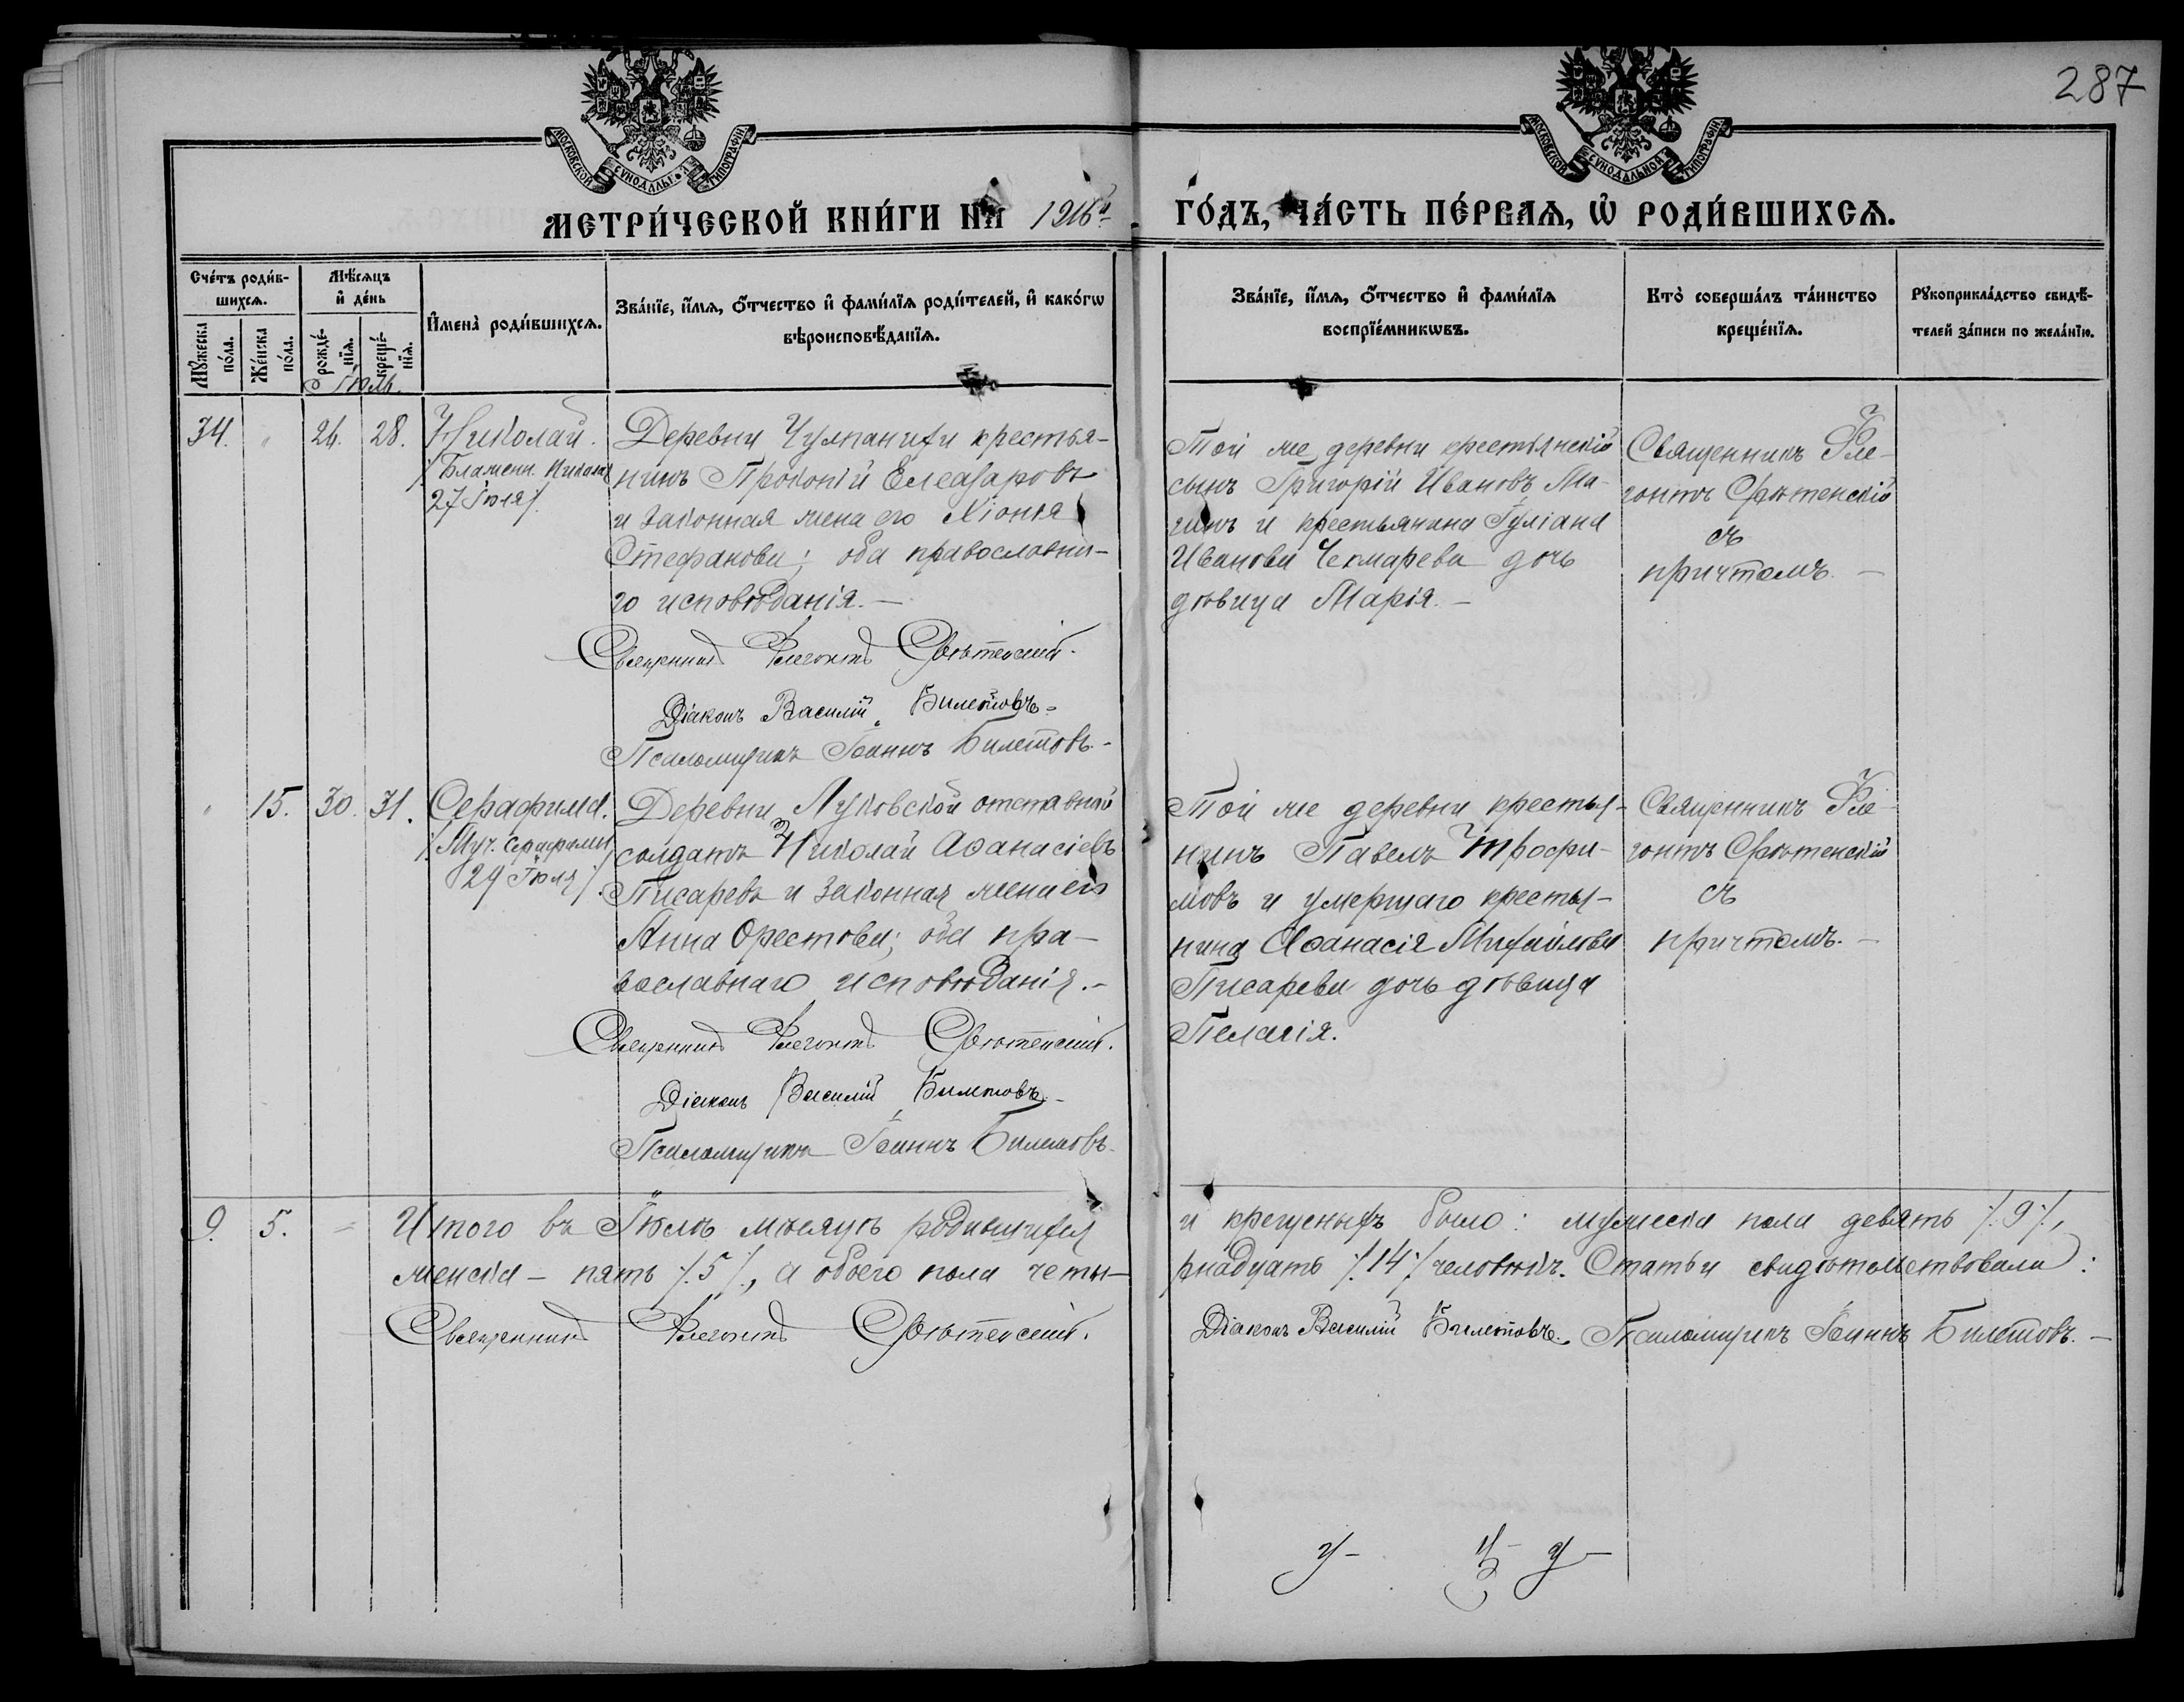 287
МОСКОВСКОЙ СѴНОДАЛЬНОЙ ТИПОГРАФІИ
МОСКОВСКОЙ СѴНОДАЛЬНОЙ ТИПОГРАФІИ
МЕТРИ́ЧЕСКОЙ КНИ́ГИ НА 1916й
ГО́ДЪ, ЧА́СТЬ ПЕ́РВАѦ, Ѽ РОДИ́ВШИХСѦ.
Сче́тъ роди́в-
шихсѧ.
Мꙋжеска по́ла.
Же́нска по́ла.
Мѣ́сѧцъ
и҆ де́нь
рожде́-
нїѧ.
креще́-
нїѧ.
И҆мена̀ роди́вшихсѧ.
Зва́нїе, и҆́мѧ, ѻ҆́тчество и҆ фами́лїѧ роди́телей, и҆ како́гѡ
вѣроисповѣ́данїѧ.
Зва́нїе, и҆́мѧ, ѻ҆́тчество и҆ фами́лїѧ
воспрїе́мникѡвъ.
Кто̀ соверша́лъ та́инство
креще́нїѧ.
Рꙋкоприкла́дство свидѣ́-
телей за́писи по жела́нїю.
Іюль.
34. " 26. 28. Николай.
/Блажен. Николая
27 Іюля/.
Деревни Чулпанихи крестья-
нинъ Прокопій Елеазаровъ
и законная жена его Хіонія
Стефанова; оба православна-
го исповѣданія.—
Священникъ Флегонтъ Срѣтенскій.
Діаконъ Василій Билетовъ.
Псаломщикъ Іоаннъ Билетовъ.
Той же деревни крестьянскій
сынъ Григорій Ивановъ
и крестьянина Іуліана
Иванова Чекмарева дочь
дѣвица Марія.—
Священникъ Фле-
гонтъ Срѣтенскій
съ
причтомъ.—
" 15. 30. 31. Серафима.
/.Муч. Серафимы
29 Іюля/.
Деревни Луковской отставной
солдатъ Николай Аѳанасіевъ
Писаревъ и законная жена его
Анна Орестова; оба пра-
вославнаго исповѣданія.—
Священникъ Флегонтъ Срѣтенскій.
Діаконъ Василій Билетовъ.
Псаломщикъ Іоаннъ Билетовъ.
Той же деревни крестья-
нинъ Павелъ Трофи-
мовъ и умершаго крестья-
нина Аѳанасія Михайлова
Писарева дочь дѣвица
Пелагія.
Священникъ Фле-
гонтъ Срѣтенскій
съ
причтомъ.—
9. 5. — Итого въ Іюлѣ мѣсяцѣ родившихся и крещеныхъ было: мужеска пола девять /.9/.,
женска — пять /.5/., а обоего пола четы-
рнадцать /.14/. человѣкъ. Статьи свидѣтельствовали:
Священникъ Флегонтъ Срѣтенскій.
Діаконъ Василій Билетовъ. Псаломщикъ Іоаннъ Билетовъ.—